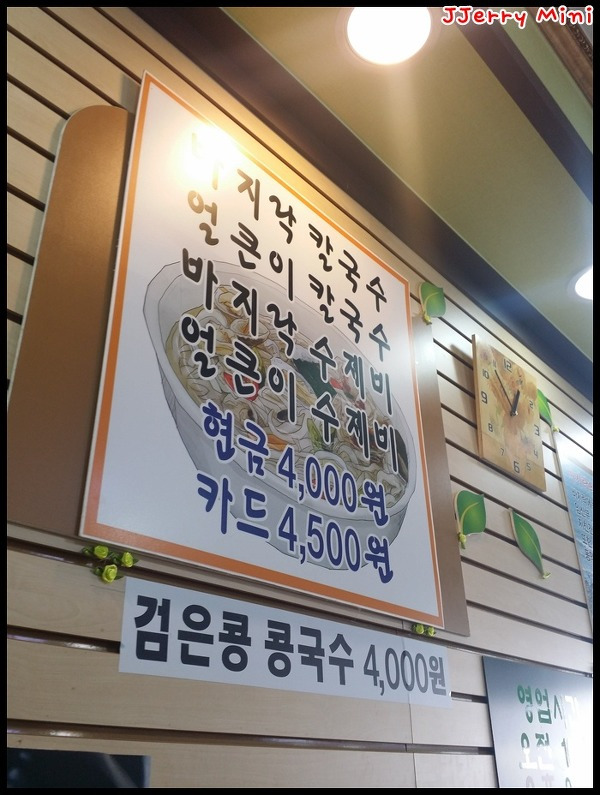 JJerry Mini
바지락 칼국수
얼큰이 칼국수
바지락 수제비
얼큰이 수제비
현금 4,000원
카드 4,500원
검은콩 콩국수 4,000원
영업시
오전 1